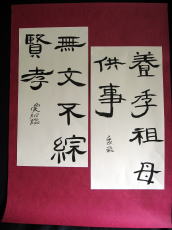 養季祖母
供事
無文不綜
賢孝